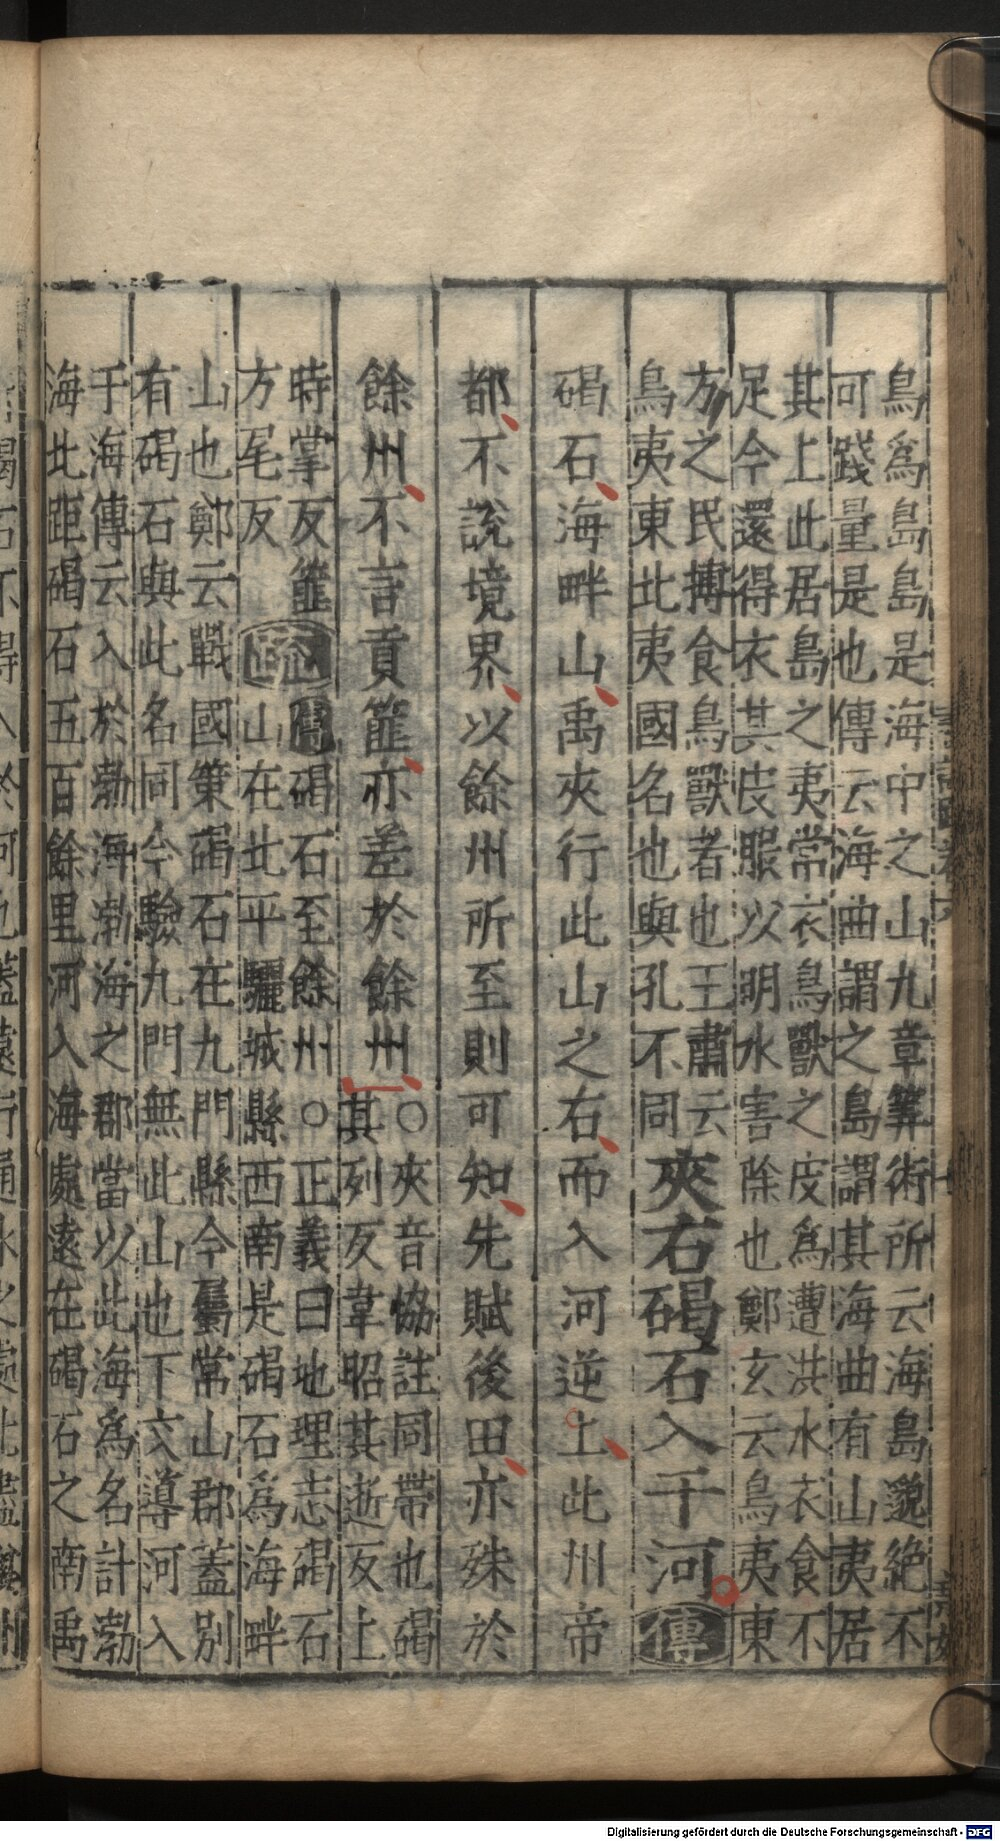 鳥爲島島是海中之山九章筭術所云海島邈絶不
可踐量是也傳云海曲謂之島謂其海曲有山夷居
其上此居島之夷常衣鳥獸之皮爲遭洪水衣食不
足今還得衣其皮服以明水害除也鄭玄云鳥夷東
方之民搏食鳥獸者也王肅云
鳥夷東北夷國名也與孔不同
夾右碣石入于河傳
碣石海畔山禹夾行此山之右而入河逆上此州帝
都不說境界以餘州所至則可知先賦後田亦殊於
餘州不言貢篚亦差於餘州○
夾音協註同帶也碣
其列反韋昭其逝反上
時掌反篚
方尾反
疏傳碣石至餘州○正義曰地理志碣石
山在北平驪城縣西南是碣石爲海畔
山也鄭云戰國策碣石在九門縣今屬常山郡蓋別
有碣石與此名同今驗九門無此山也下文導河入
于海傳云入於渤海渤海之郡當以此海爲名計渤
海北距碣石五百餘里河入海處遠在碣石之南禹
Digitalisierung gefördert durch die Deutsche Forschungsgemeinschaft - DFG